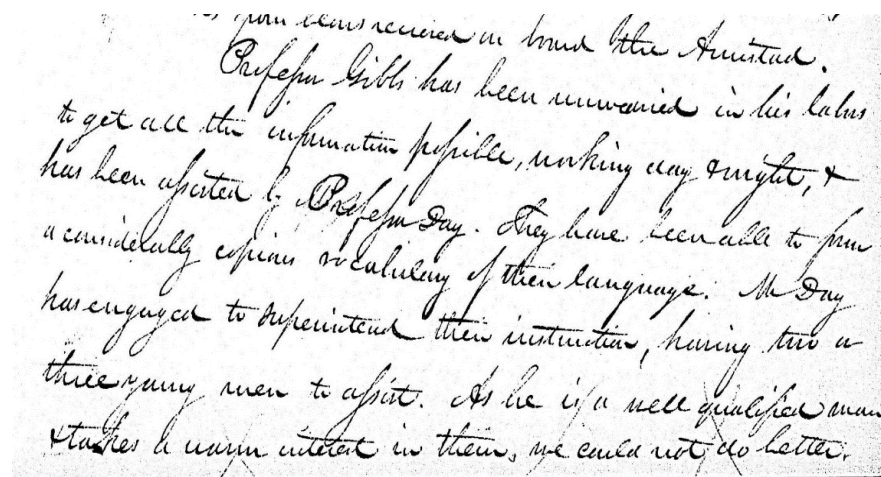 from received on board the Amistad.
Professor Gibbs has been unwearied in his labors
to get all the information possible, working day & night, &
has been assisted by Professor Day. They have been able to form
a considerably copious vocabulary of their language. Mr Day
has engaged to superintend their instruction, having two or
three young men to assist. As he is a well qualified man
& takes a warm interest in them, we could not do better.